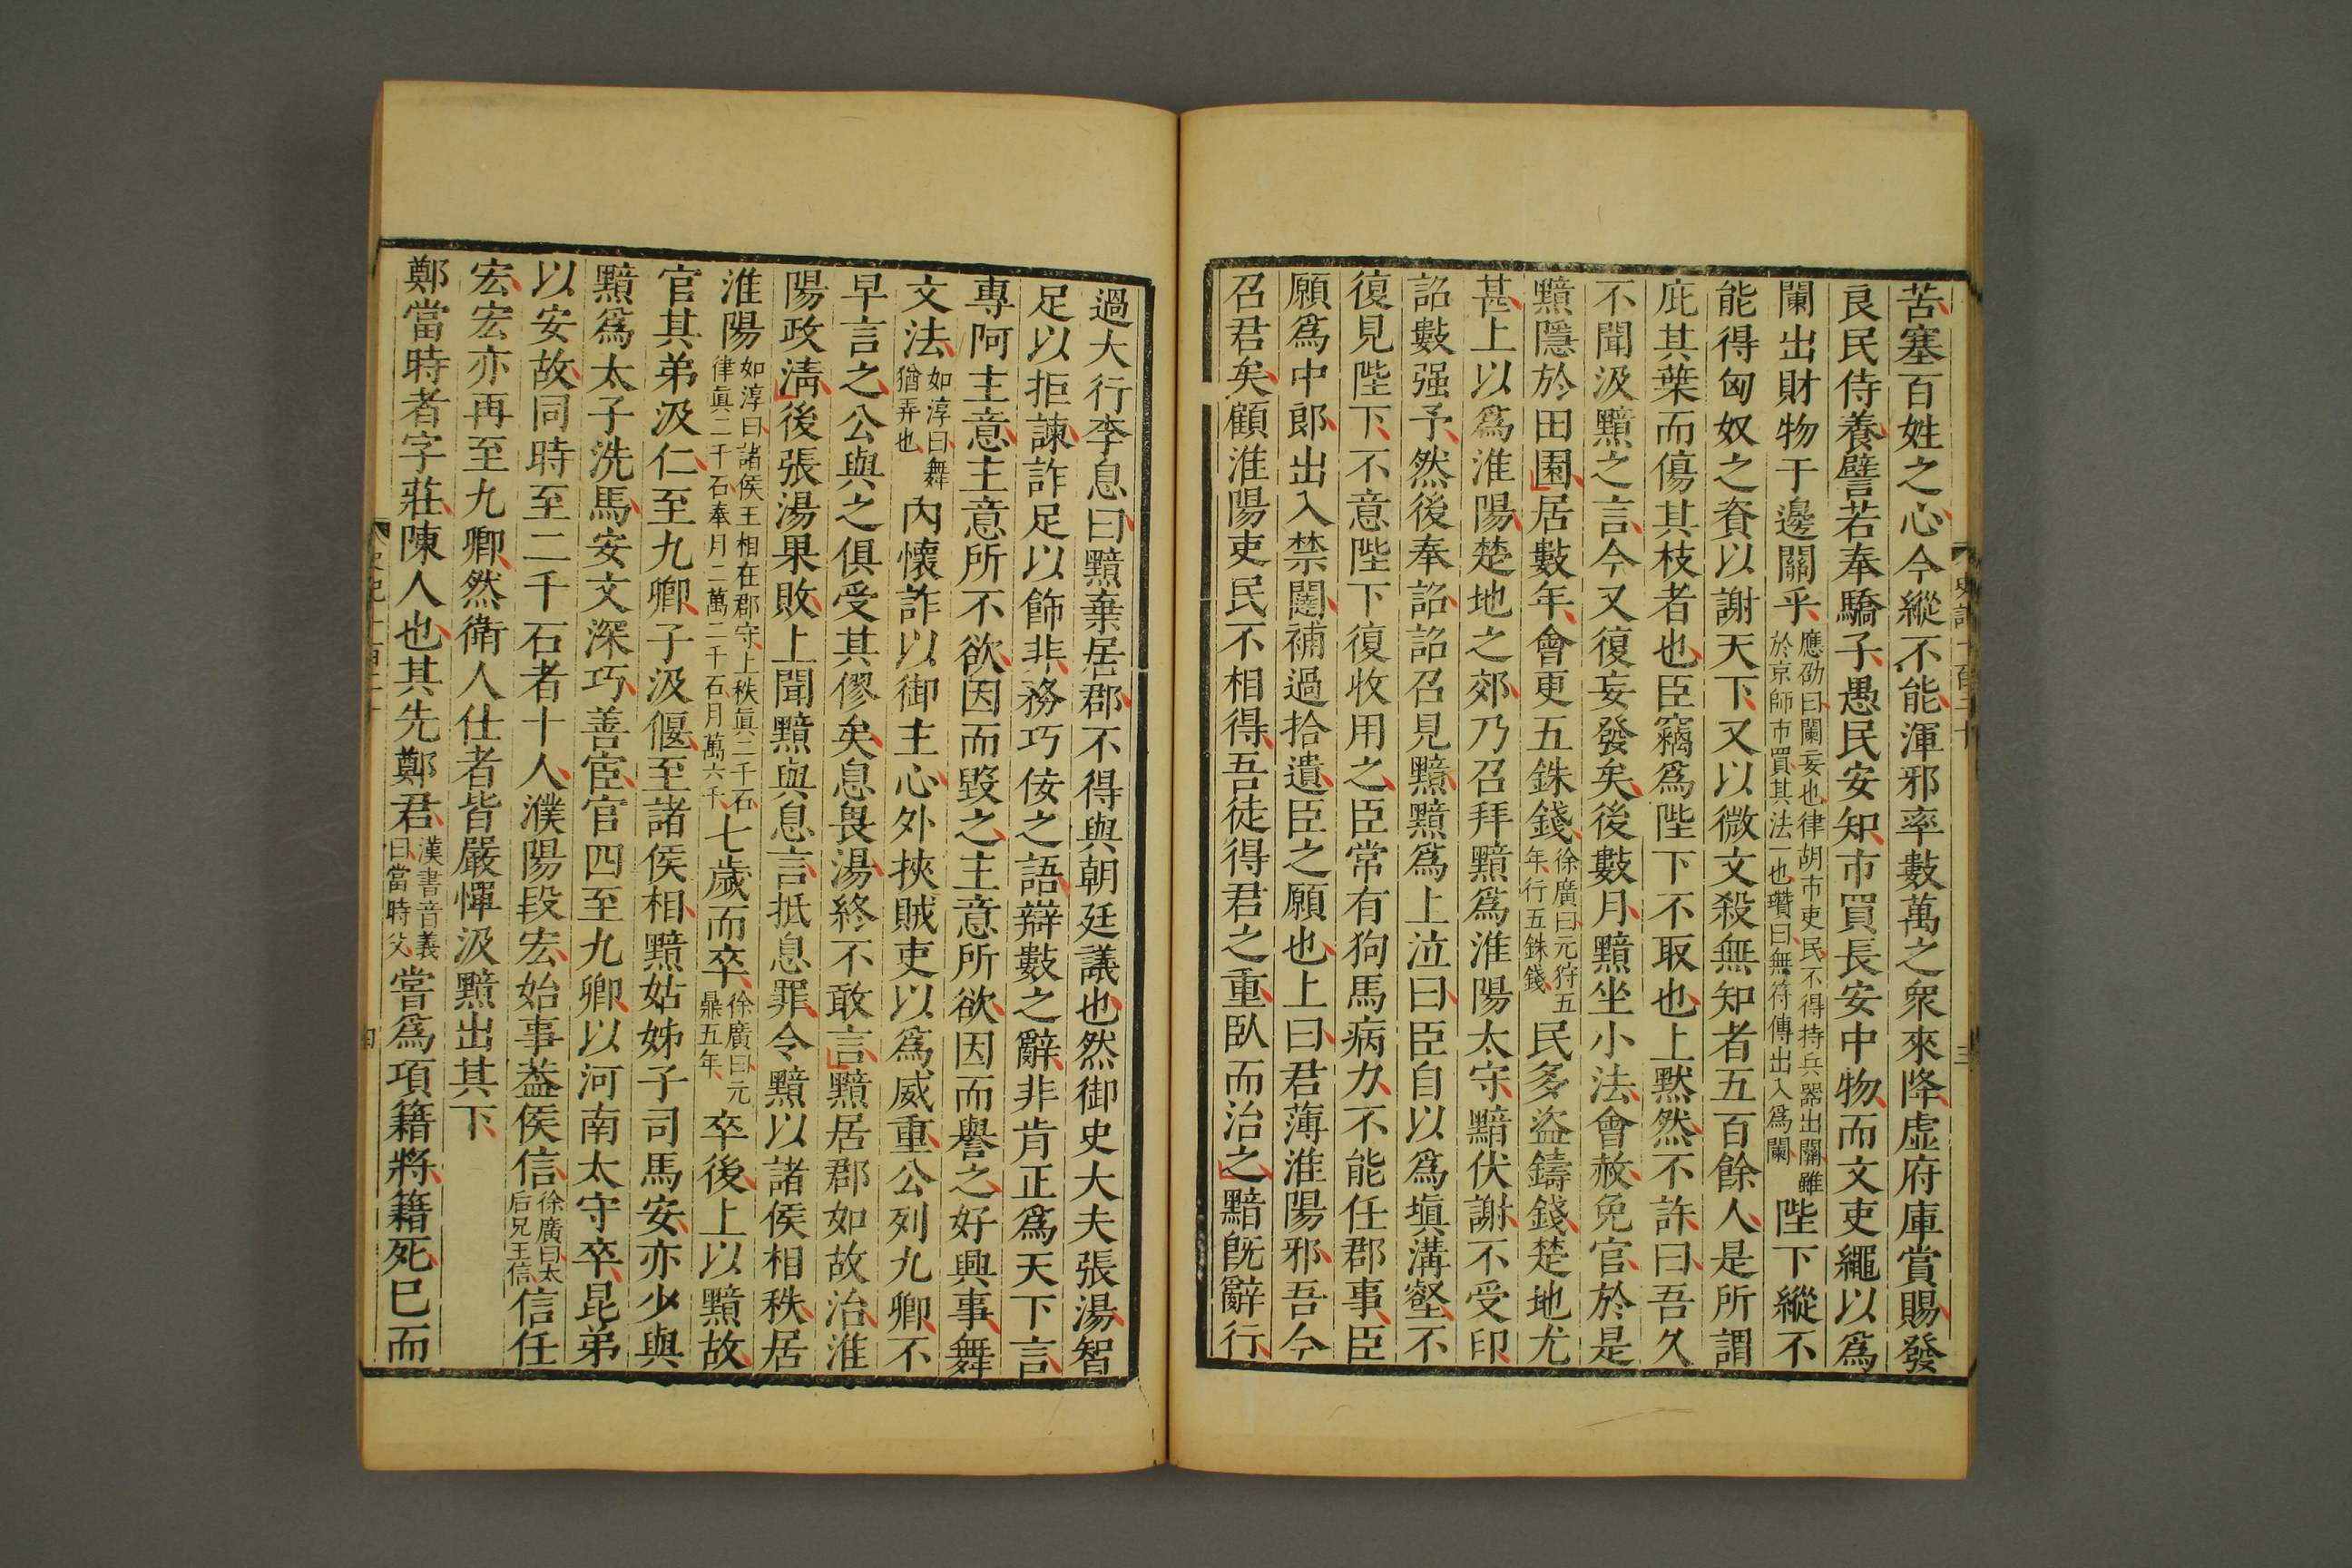 苦塞百姓之心今縱不能渾邪率數萬之衆來降虛府庫賞賜發
良民侍養譬若奉驕子愚民安知市買長安中物而文吏繩以爲
闌出財物于邊關乎應劭曰闌妄也律胡市吏民不得持兵器出關雖於京師市買其法一也瓚曰無符傳出入爲闌陛下縱不
能得匈奴之資以謝天下又以微文殺無知者五百餘人是所謂
庇其葉而傷其枝者也臣竊爲陛下不取也上默然不許曰吾久
不聞汲黯之言今又復妄發矣後數月黯坐小法會赦免官於是
黯隱於田園居數年會更五銖錢徐廣曰元狩五年行五銖錢民多盜鑄錢楚地尤
甚上以爲淮陽楚地之郊乃召拜黯爲淮陽太守黯伏謝不受印
詔數强予然後奉詔詔召見黯黯爲上泣曰臣自以爲塡溝壑不
復見陛下不意陛下復收用之臣常有狗馬病力不能任郡事臣
願爲中郎出入禁闥補過拾遺臣之願也上曰君薄淮陽邪吾今
召君矣顧淮陽吏民不相得吾徒得君之重臥而治之黯旣辭行
過大行李息曰黯棄居郡不得與朝廷議也然御史大夫張湯智
足以拒諫詐足以飾非務巧佞之語辯數之辭非肯正爲天下言
專阿主意主意所不欲因而毀之主意所欲因而譽之好興事舞
文法如淳曰舞猶弄也內懷詐以御主心外挾賊吏以爲威重公列九卿不
早言之公與之俱受其僇矣息畏湯終不敢言黯居郡如故治淮
陽政淸後張湯果敗上聞黯與息言抵息罪令黯以諸侯相秩居
淮陽如淳曰諸侯王相在郡守上秩眞二千石律眞二千石奉月二萬二千石月萬六千七歲而卒徐廣曰元鼎五年卒後上以黯故
官其弟汲仁至九卿子汲偃至諸侯相黯姑姊子司馬安亦少與
黯爲太子洗馬安文深巧善宦官四至九卿以河南太守卒昆弟
以安故同時至二千石者十人濮陽段宏始事葢侯信徐廣曰太后兄王信信任
宏宏亦再至九卿然衛人仕者皆嚴憚汲黯出其下
鄭當時者字莊陳人也其先鄭君漢書音義曰當時父嘗爲項籍將籍死已而